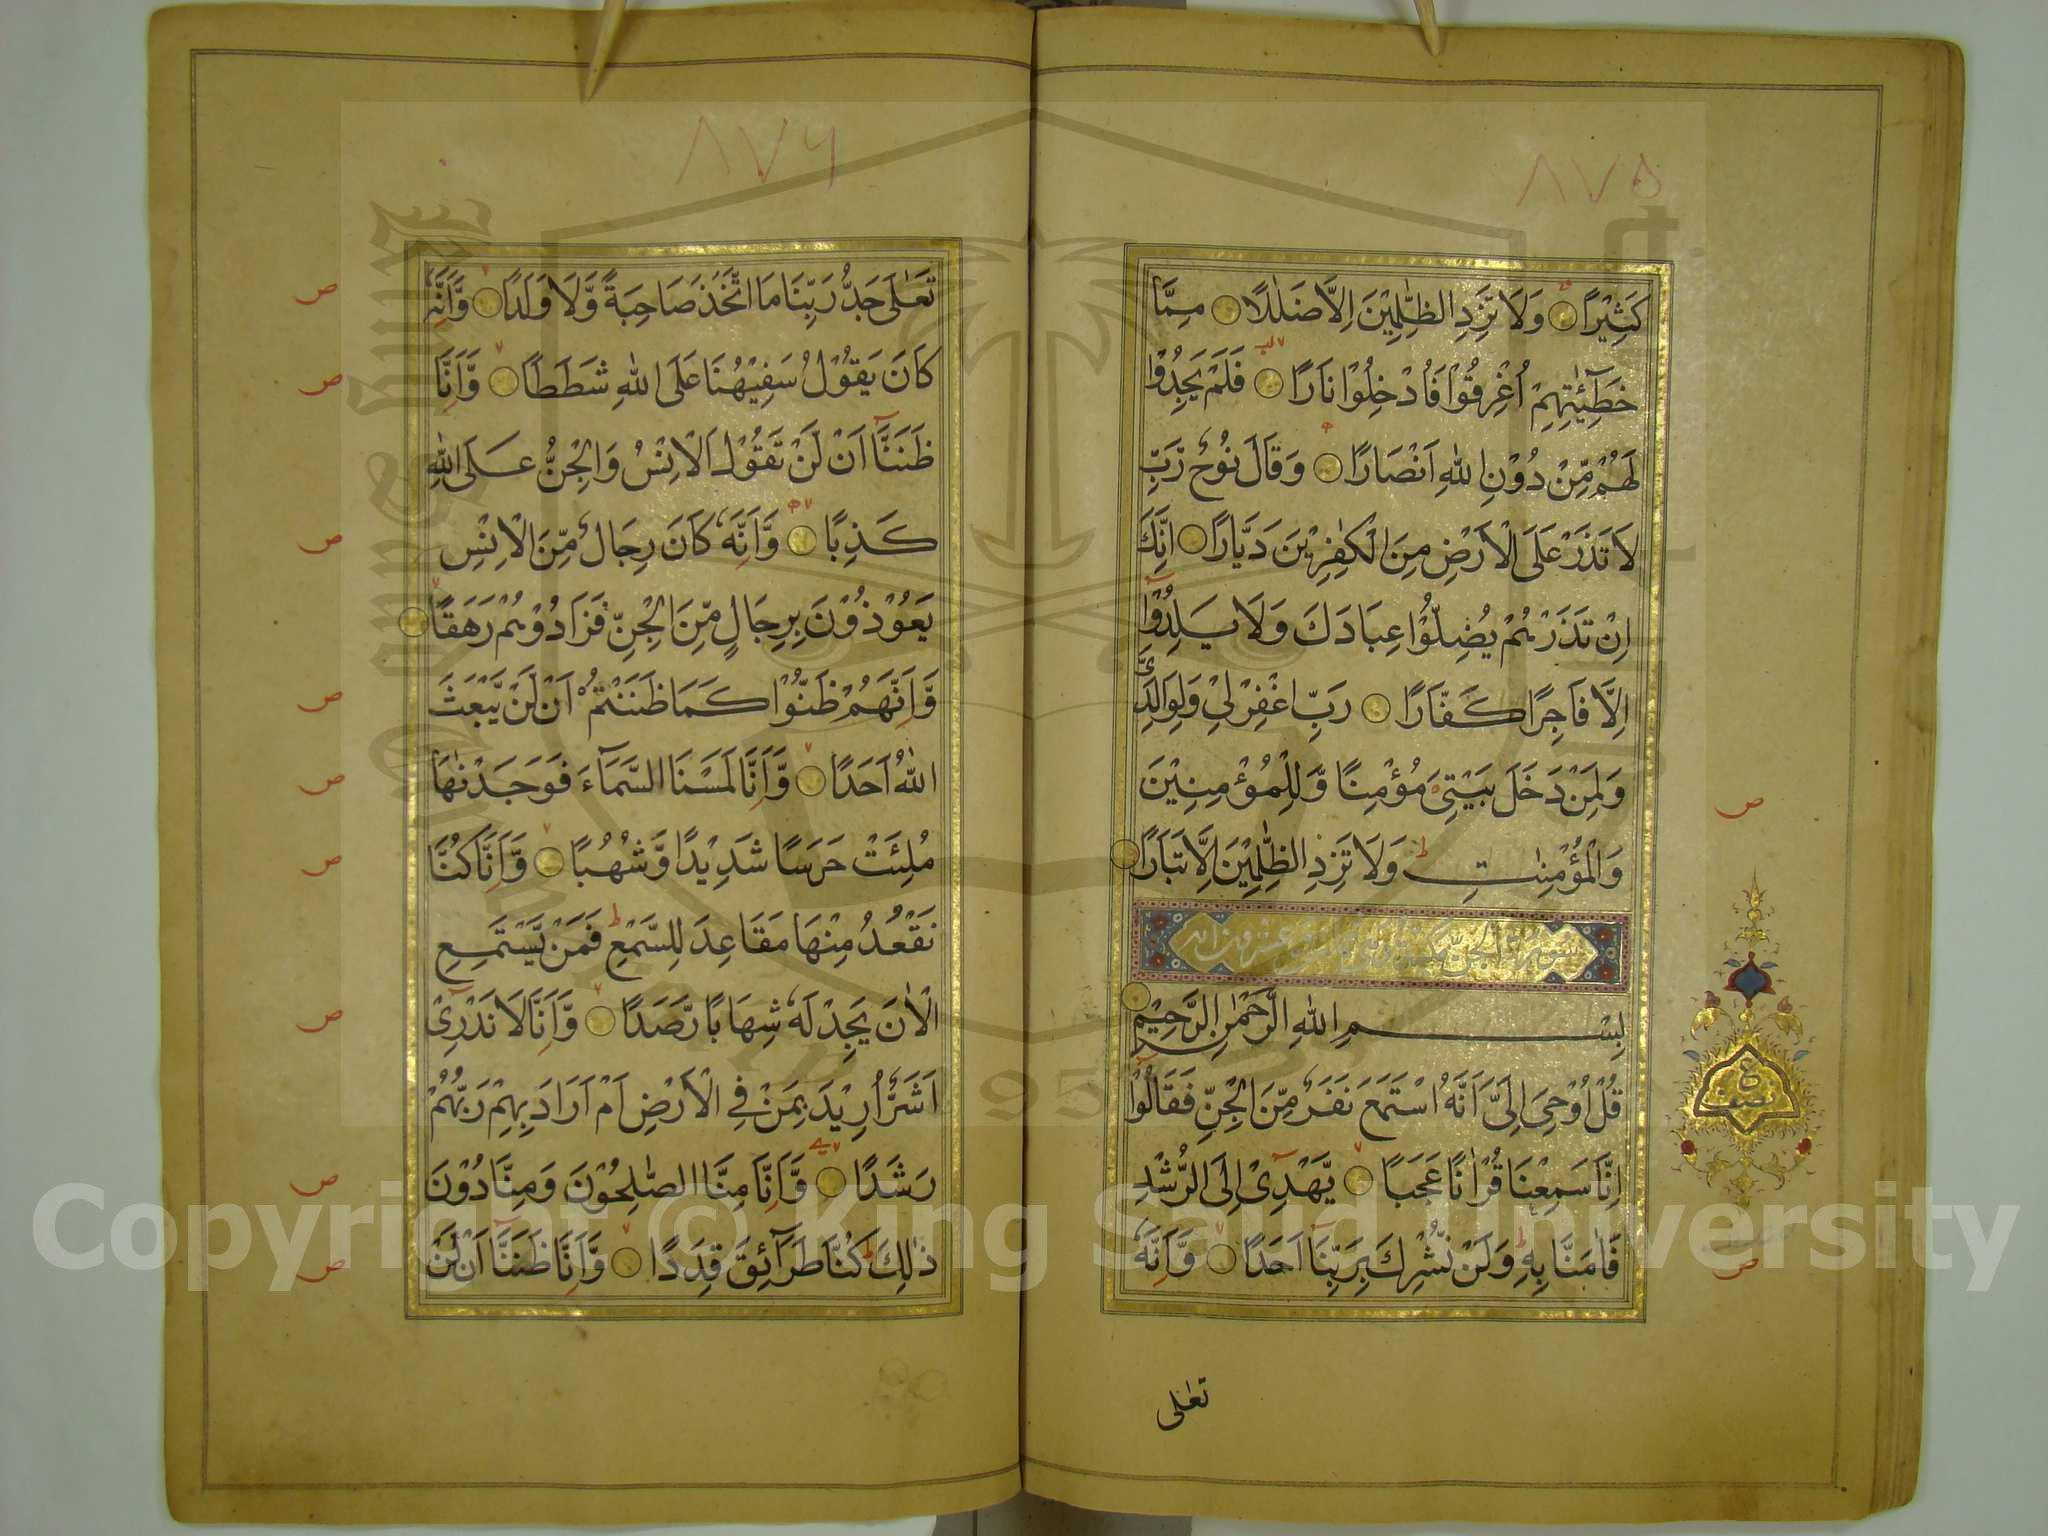 ٨٧٥
كَثِيْرًا وَلَا تَزِدِ الظّٰلِمِيْنَ اِلَّا ضَلٰلًا مِمَّا
خَطِيْٓئٰتِهِمْ اُغْرِقُوْا فَاُدْخِلُوْا نَارًا فَلَمْ يَجِدُوْا
لَهُمْ مِّنْ دُوْنِ اللّٰهِ اَنْصَارًا وَقَالَ نُوْحٌ رَّبِّ
لَا تَذَرْ عَلَى الْاَرْضِ مِنَ الْكٰفِرِيْنَ دَيَّارًا اِنَّكَ
اِنْ تَذَرْهُمْ يُضِلُّوْا عِبَادَكَ وَلَا يَلِدُوْٓا
اِلَّا فَاجِرًا كَفَّارًا رَبِّ اغْفِرْ لِيْ وَلِوَالِدَيَّ
وَلِمَنْ دَخَلَ بَيْتِيَ مُؤْمِنًا وَّلِلْمُؤْمِنِيْنَ
وَالْمُؤْمِنٰتِ ط وَلَا تَزِدِ الظّٰلِمِيْنَ اِلَّا تَبَارًا
سورة الجن مكية
بِسْمِ اللّٰهِ الرَّحْمٰنِ الرَّحِيْمِ
قُلْ اُوْحِيَ اِلَيَّ اَنَّهُ اسْتَمَعَ نَفَرٌ مِّنَ الْجِنِّ فَقَالُوْٓا
اِنَّا سَمِعْنَا قُرْاٰنًا عَجَبًا يَّهْدِيْٓ اِلَى الرُّشْدِ
فَاٰمَنَّا بِهٖ ط وَلَنْ نُّشْرِكَ بِرَبِّنَآ اَحَدًا وَّاَنَّهٗ
تعٰلى
ص
ع
نصف
ص
٨٧٦
تَعٰلٰى جَدُّ رَبِّنَا مَا اتَّخَذَ صَاحِبَةً وَّلَا وَلَدًا وَّاَنَّهٗ
كَانَ يَقُوْلُ سَفِيْهُنَا عَلَى اللّٰهِ شَطَطًا وَّاَنَّا
ظَنَنَّآ اَنْ لَّنْ تَقُوْلَ الْاِنْسُ وَالْجِنُّ عَلَى اللّٰهِ
كَذِبًا وَّاَنَّهٗ كَانَ رِجَالٌ مِّنَ الْاِنْسِ
يَعُوْذُوْنَ بِرِجَالٍ مِّنَ الْجِنِّ فَزَادُوْهُمْ رَهَقًا
وَّاَنَّهُمْ ظَنُّوْا كَمَا ظَنَنْتُمْ اَنْ لَّنْ يَّبْعَثَ
اللّٰهُ اَحَدًا وَّاَنَّا لَمَسْنَا السَّمَآءَ فَوَجَدْنٰهَا
مُلِئَتْ حَرَسًا شَدِيْدًا وَّشُهُبًا وَّاَنَّا كُنَّا
نَقْعُدُ مِنْهَا مَقَاعِدَ لِلسَّمْعِ ط فَمَنْ يَّسْتَمِعِ
الْاٰنَ يَجِدْ لَهٗ شِهَابًا رَّصَدًا وَّاَنَّا لَا نَدْرِيْٓ
اَشَرٌّ اُرِيْدَ بِمَنْ فِي الْاَرْضِ اَمْ اَرَادَ بِهِمْ رَبُّهُمْ
رَشَدًا وَّاَنَّا مِنَّا الصّٰلِحُوْنَ وَمِنَّا دُوْنَ
ذٰلِكَ ط كُنَّا طَرَآئِقَ قِدَدًا وَّاَنَّا ظَنَنَّآ اَنْ لَّنْ
ص
ص
ص
ص
ص
ص
ص
ص
ص
Copyright © King Saud University